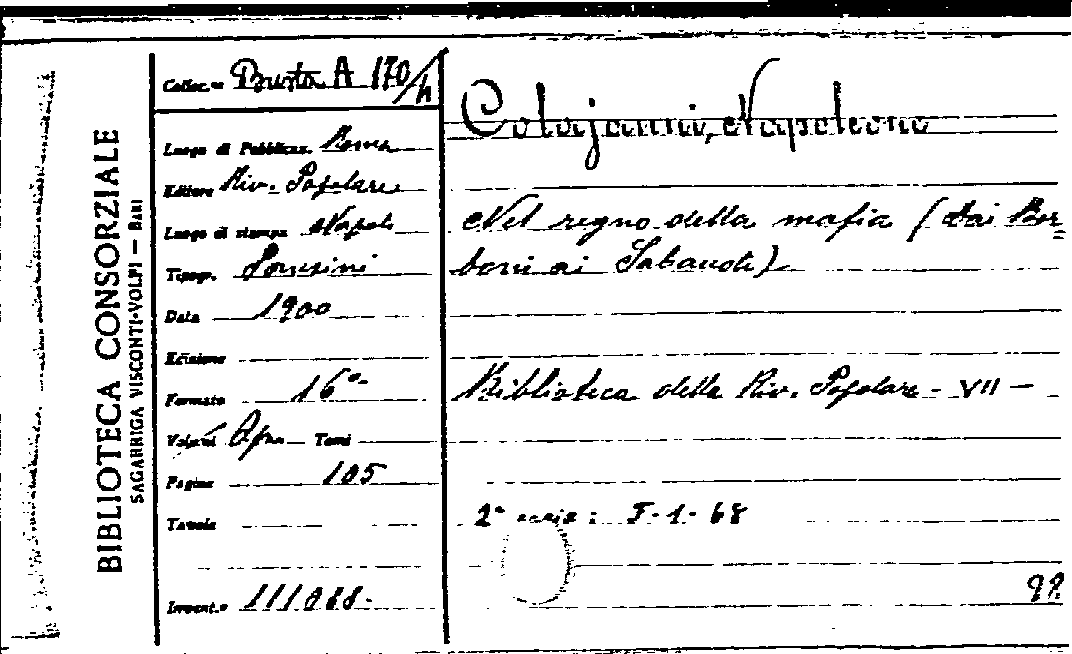 BIBLIOTECA CONSORZIALE
SAGARRIGA VISCONTI-VOLPI — BARI
Colloc.ne Busta A 170/h
Luogo di Pubblicaz. Roma
Editore Riv. Popolare
Luogo di stampa Napoli
Tipogr.
Data 1900
Edizione
Formato 16°
Volumi Opu. Tomi
Pagine 105
Tavole
Invent.o 111068
Colajanni, Napoleone
Nel regno della mafia (Dai Bor=
boni ai Sabaudi)
Biblioteca della Riv. Popolare - VII -
2ª copia: F-1-68